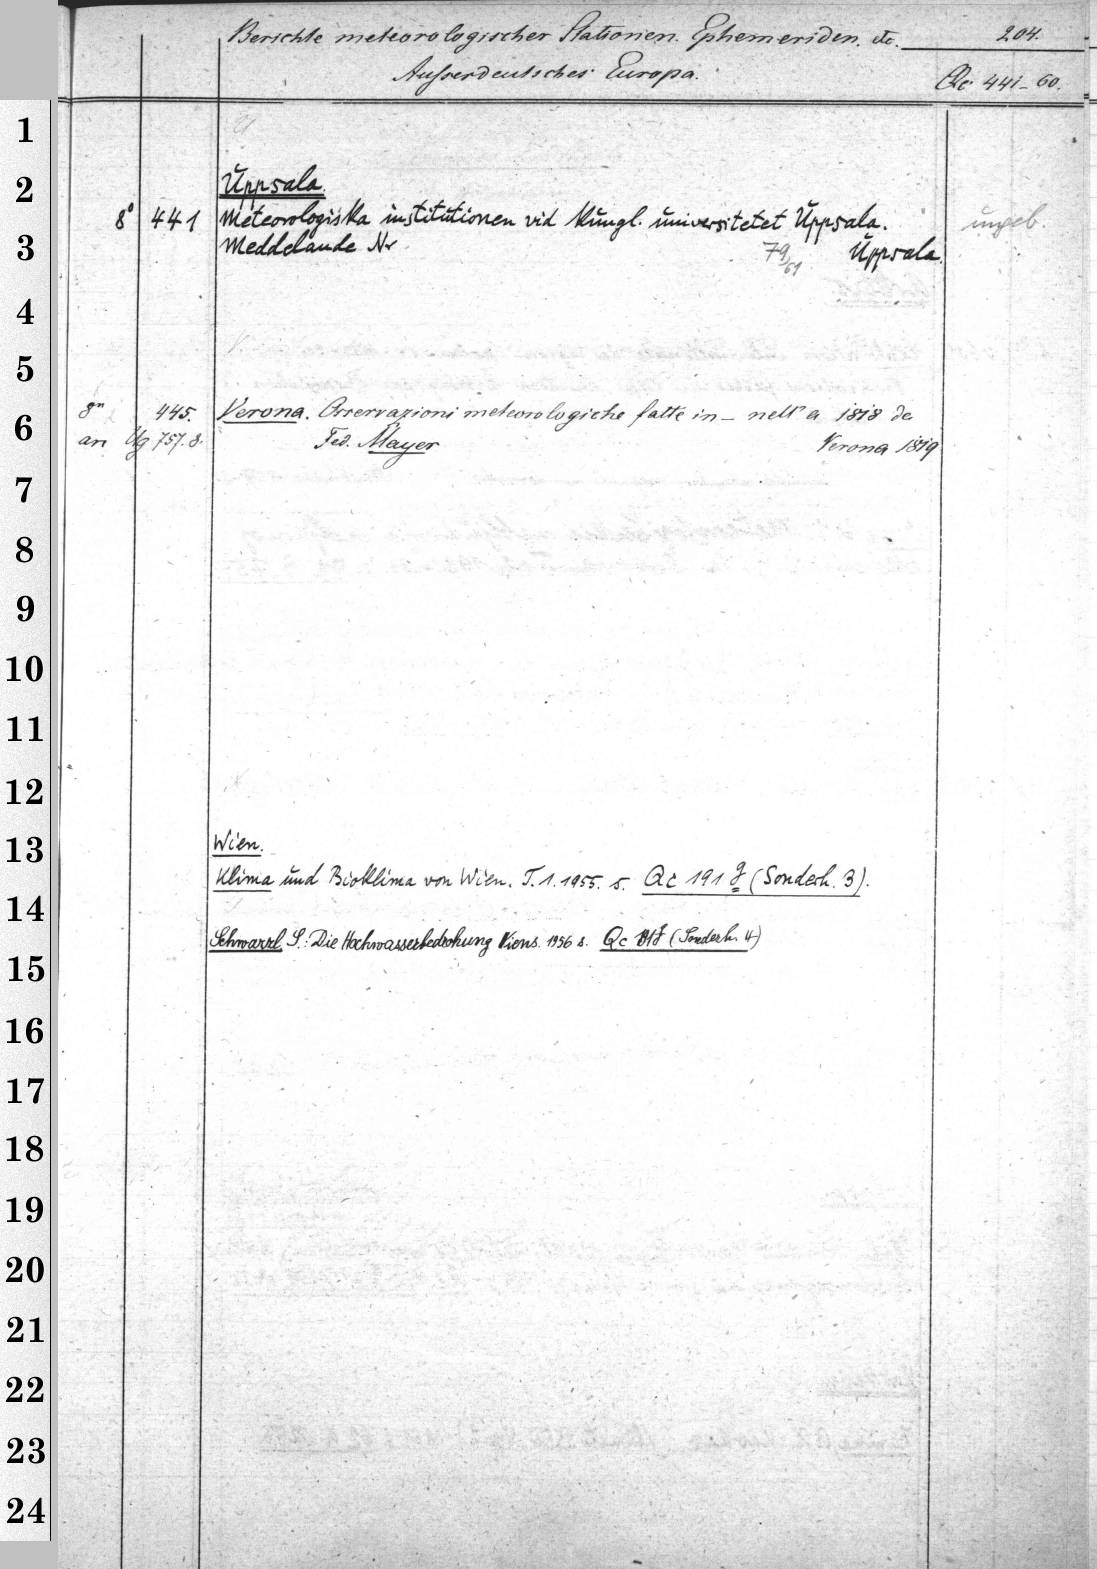 Berichte meteorologischer Stationen. Ephemeriden. etc. 204.
Ausserdeutsches Europa. Qc 441-60.
1
2 Uppsala.
8° 441 Meteorologiska institutionen vid kungl. universitetet Uppsala. ungeb.
3 Meddelande Nr 79/61 Uppsala.
4
5
8° 445. Verona. Osservazioni meteorologiche fatte in – nell'a 1818 da
6
an Ug 757.8. Fed. Mayer Verona 1819
7
8
9
10
11
12
13 Wien.
Klima und Bioklima von Wien. T.1.1955. s. Qc 191 g (Sonderh. 3).
14
Schwarzl S.: Die Hochwasserbedrohung Wiens. 1956 s. Qc 191g (Sonderh. 4)
15
16
17
18
19
20
21
22
23
24